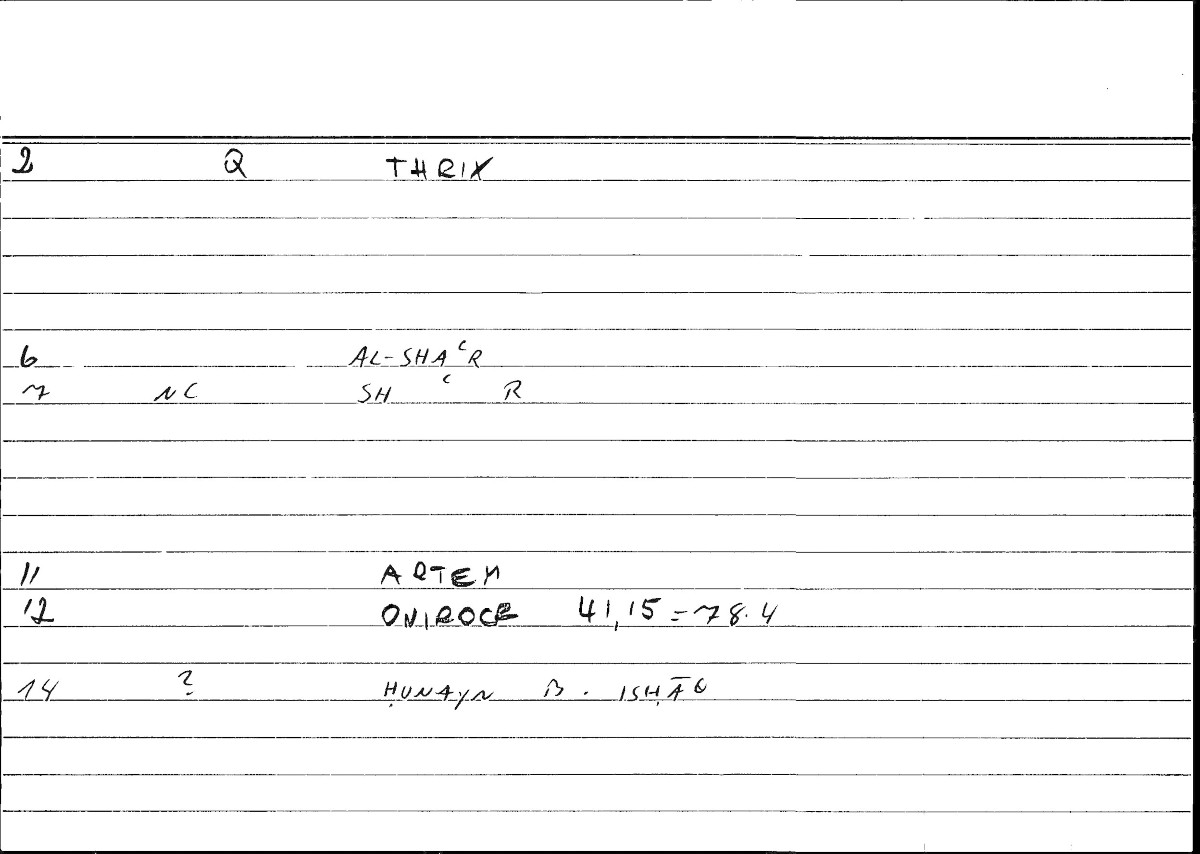 2 Q THRIX
6 AL-SHAʿR
7 NC SH ʿ R
11 ARTEM
12 ONIROCR 41,15=78.4
14 ? ḤUNAYN B. ISḤĀQ